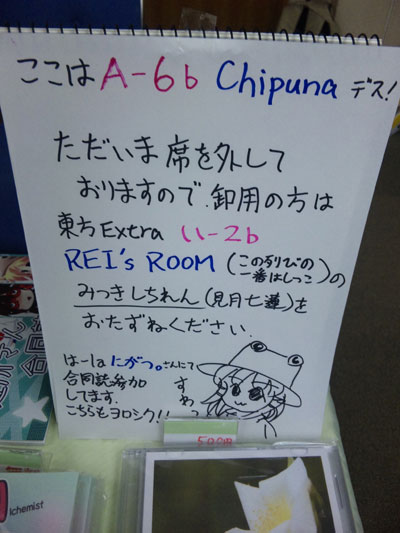 ここは A-6b Chipuna デス!
ただいま席を外して
おりますので、卸用の方は
東方Extra い-2b
REI's ROOM (この列びの
一番はしっこ)の
みつきしちれん(見月七蓮)を
おたずねください.
にがつ。さんにて
合同誌参加
してます.
こちらもヨロシク!!
すわっ
500円
lchemist